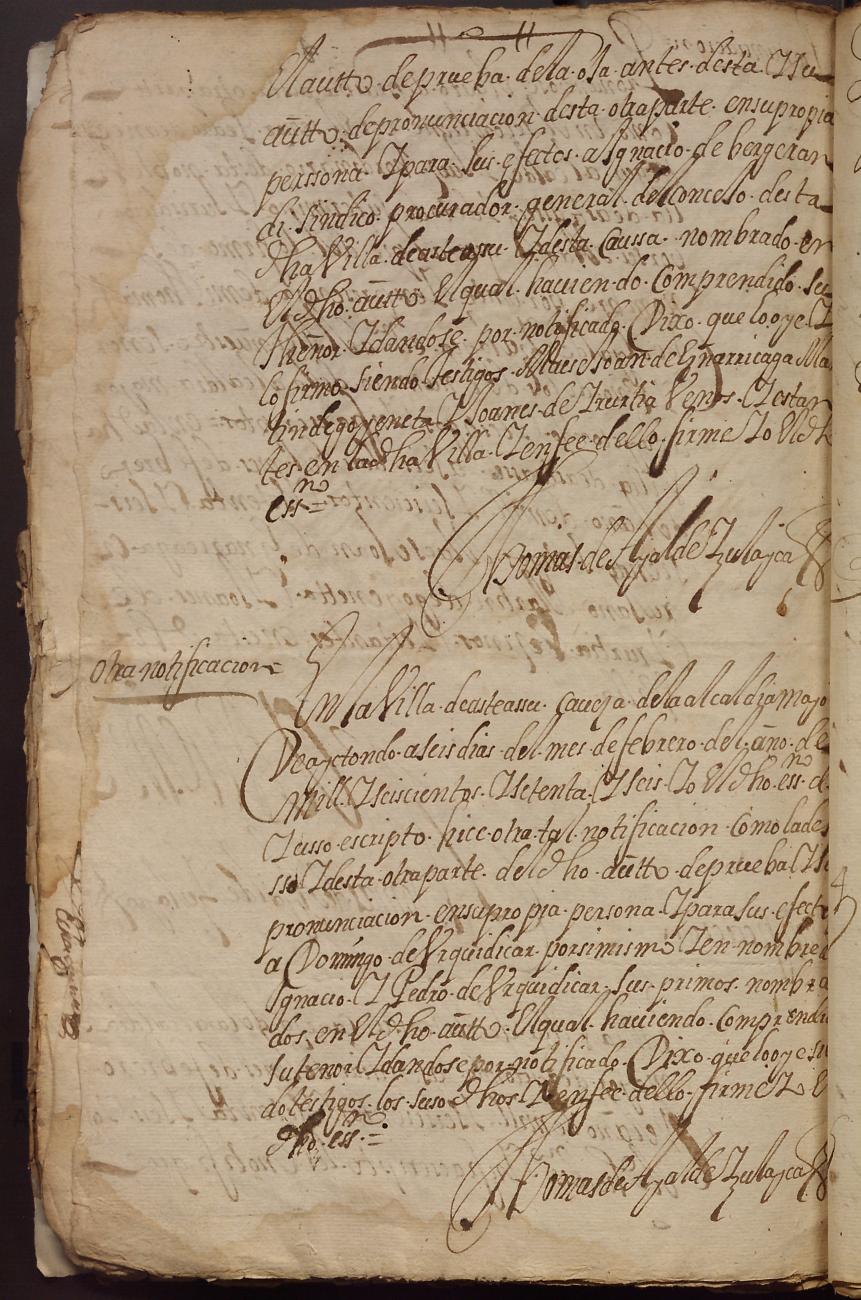 El autto de prueba de la oja antes desta Y su
autto de pronunciacion desta otra parte en su propia
perssona Y para sus efectos a Ygnacio de bergeran
di sindico procurador general del Concejo desta
dha Villa de asteasu Y desta Caussa nombrado en
El dho autto El qual haviendo Comprendido su
thenor Y dandose por notificado Dixo que lo oye Y
lo firmo siendo testigos Maese Joan de Enarriçaga Ma
tin de goyeneta Y Joanes de Yrurtia Veños Y estan
tes en la dha Villa Y en fee dello firme Yo El dh
essno =
Thomas de Alçalde Yzulayca
Otra notificacion
En la Villa de asteassu Caveça de la alcaldia mayo
De aYztondo a seis dias del mes de febrero del año de
Mill Y seiscientos Y setenta Y seis Yo El dho essno de
Yusso escripto hice otra tal notificacion Como la de
sso Y desta otra parte del dho autto de prueba Y su
pronunciacion en su propia persona Y para sus efecto
a Domingo de Vrquidicar por si mismo Y en nombre d
Ygnacio Y Pedro de Vrquidicar sus primos nombra
dos en El dho autto El qual haviendo Comprendi
su tenor Y dandose por notificado Dixo que lo oye sie
do testigos los suso dhos Y en fee dello firme Yo E
dho essno =
Thomas de Alçalde Yzulayca